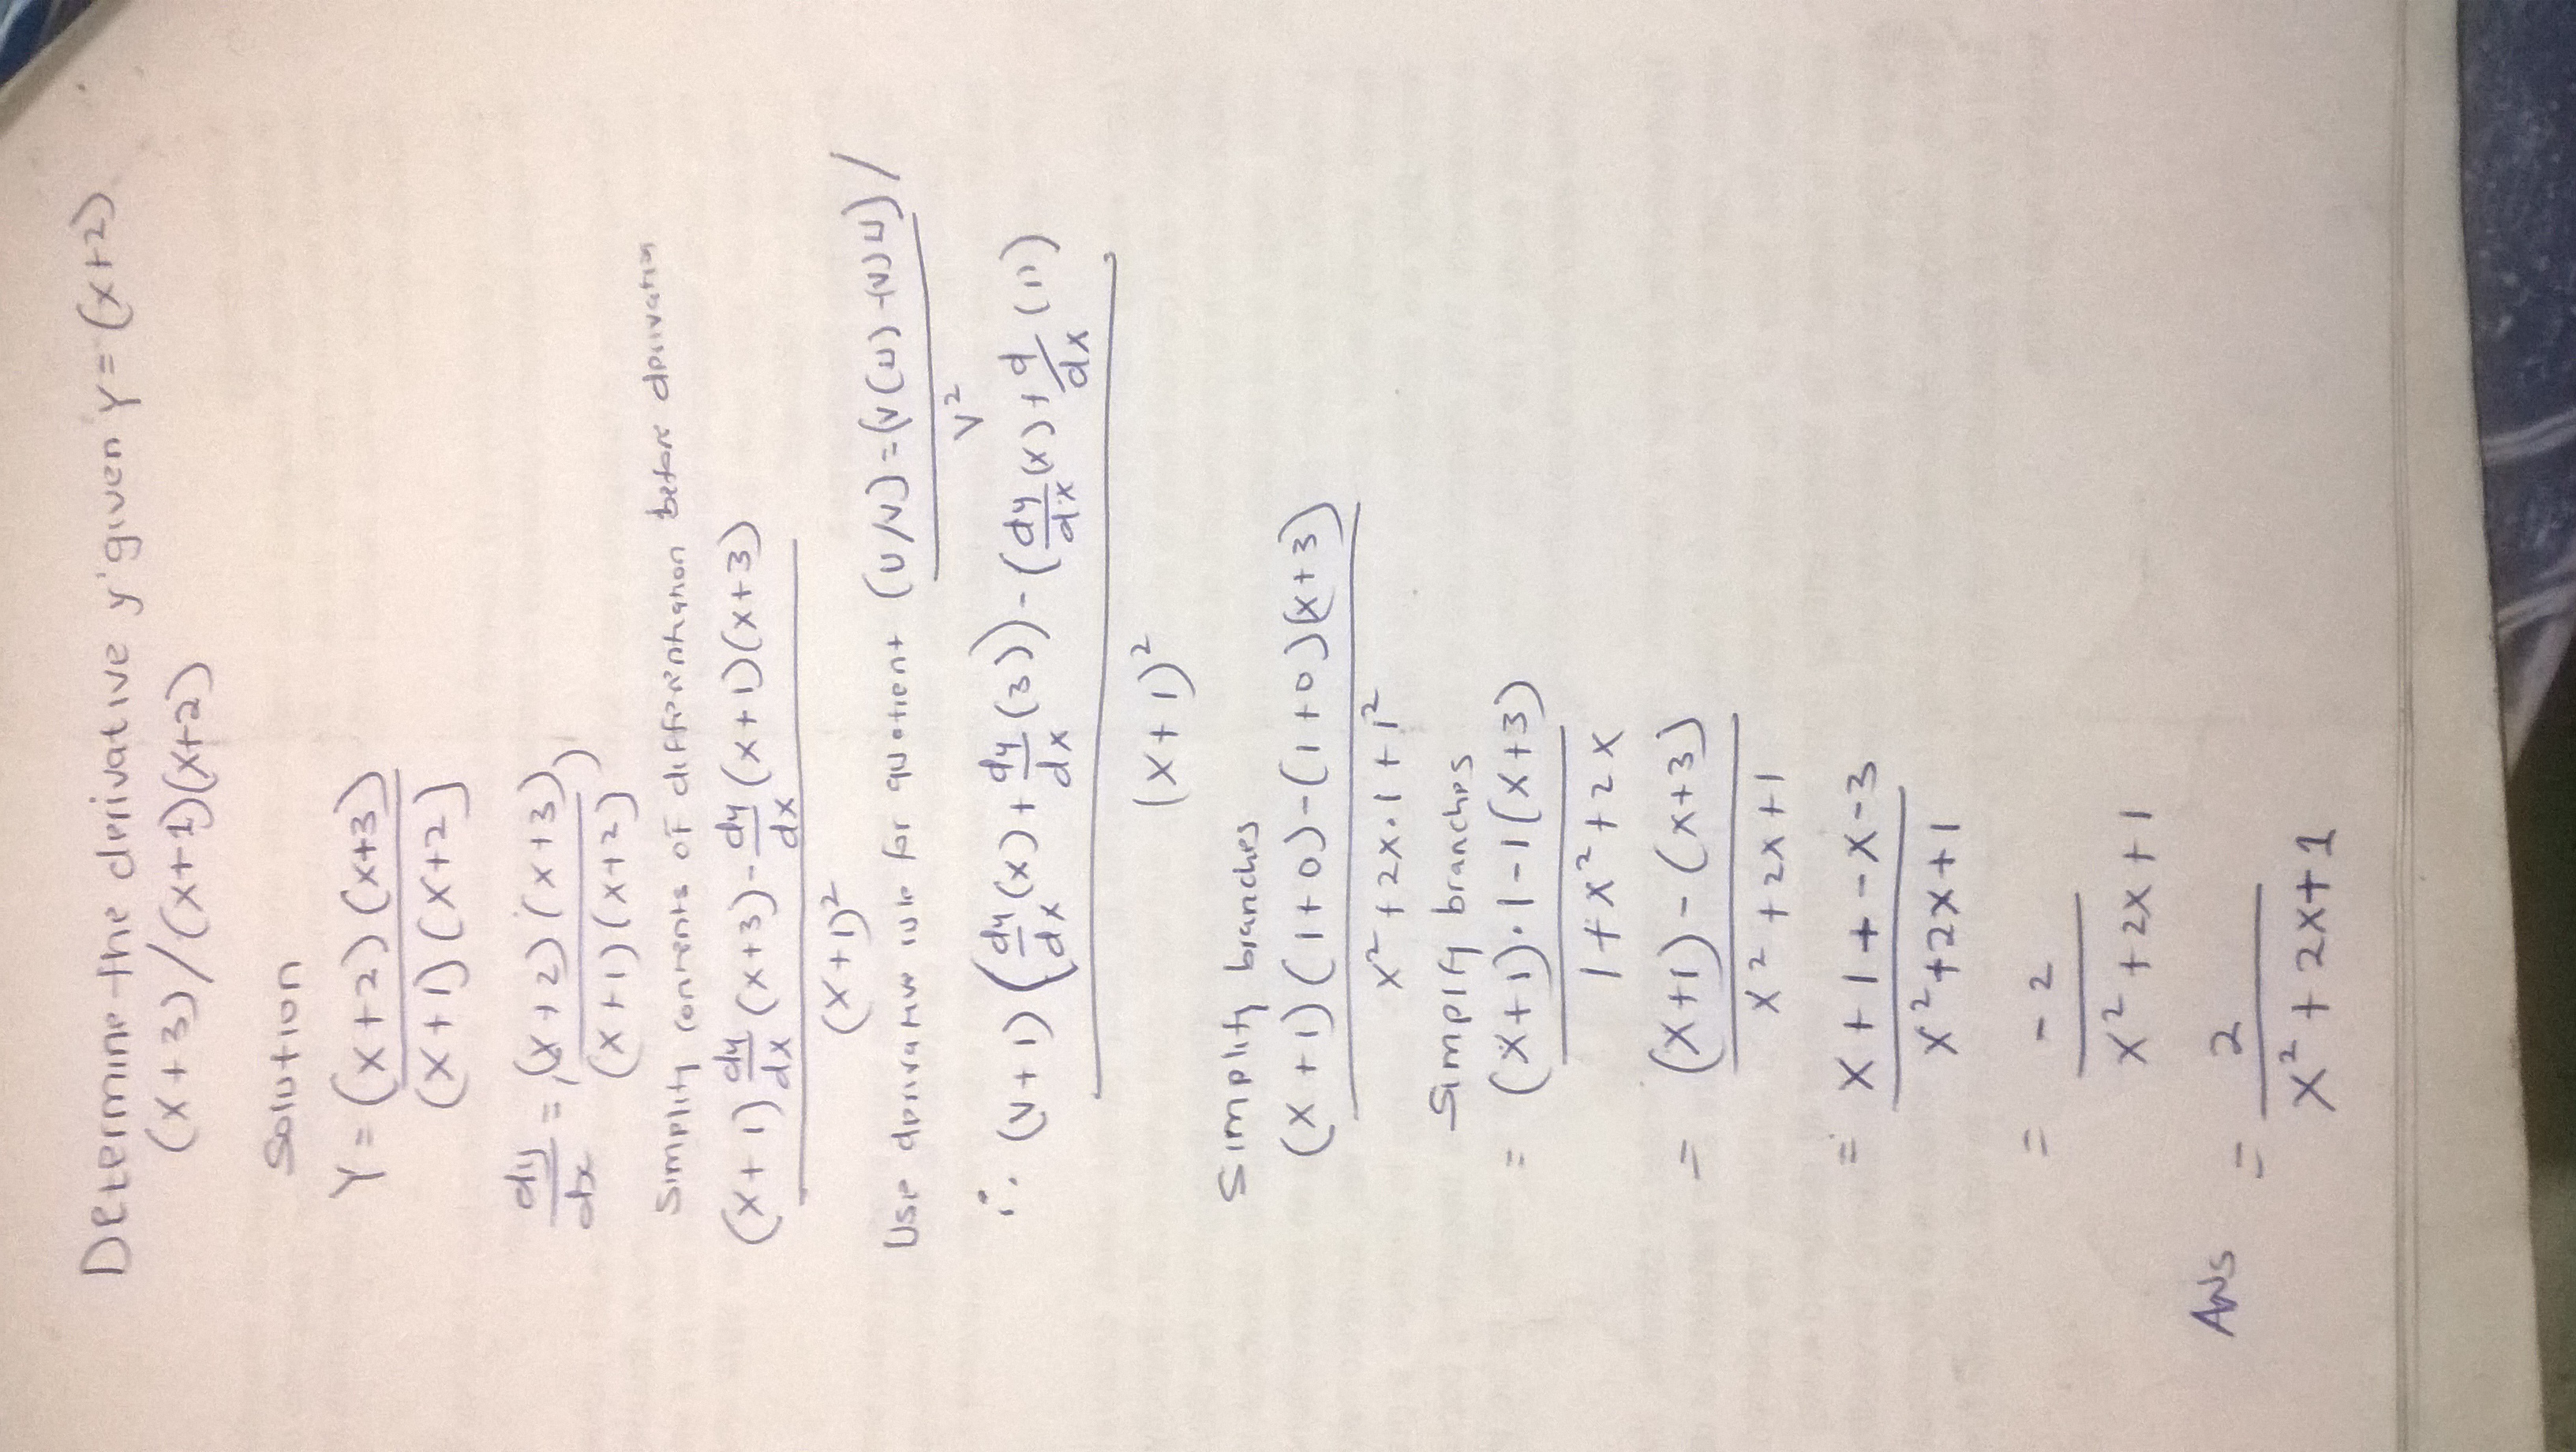 Determine the derivative y' given Y = (x+2)
(x+3)/(x+1)(x+2)
Solution
Y = (x+2)(x+3)
(x+1)(x+2)
dy/dx = (x+2)(x+3))
(x+1)(x+2)
Simplify contents of differentiation before derivating
(x+1) dy/dx (x+3) - dy/dx (x+1)(x+3)
(x+1)²
Use derivative rule for quotient (u/v) = (v(u) -(v)u)/
v²
∴ (v+1) (dy/dx (x) + dy/dx (3)) - (dy/dx (x) + d/dx (1))
(x+1)²
Simplify branches
(x+1)(1+0) - (1+0)(x+3)
x² + 2x·1 + 1²
Simplify branches
= (x+1)·1 - 1(x+3)
1 + x² + 2x
= (x+1) - (x+3)
x² + 2x + 1
= x + 1 + - x - 3
x² + 2x + 1
= - 2
x² + 2x + 1
Ans = 2
x² + 2x + 1